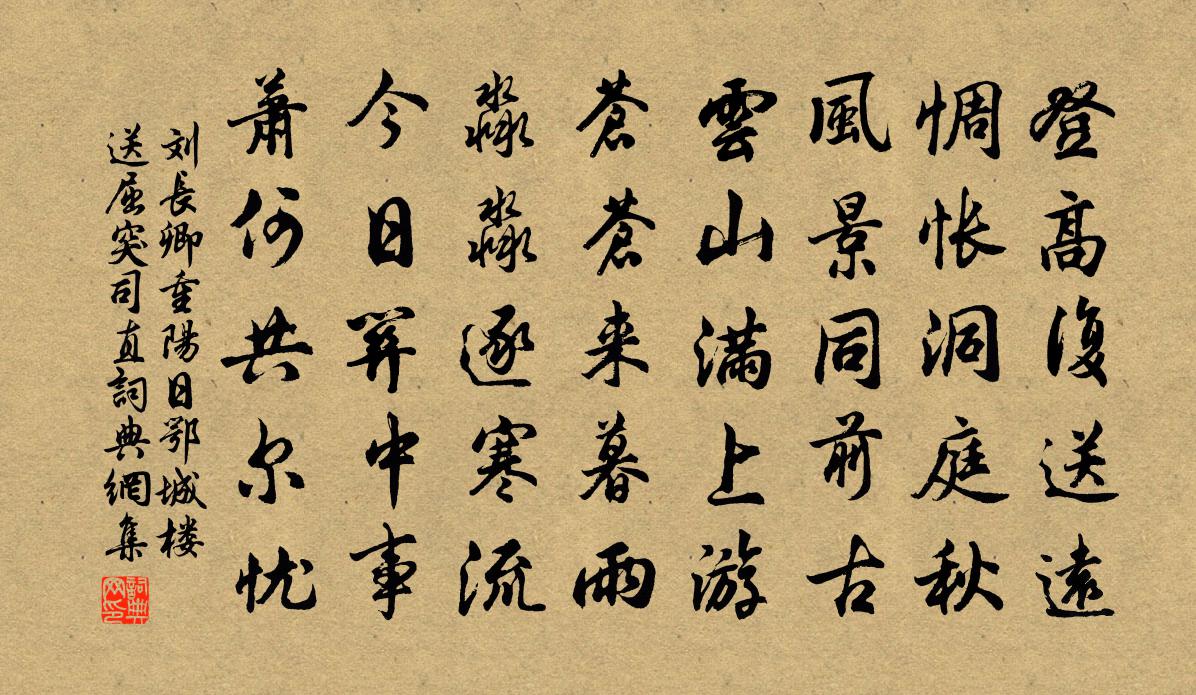 登高復送遠
惆怅洞庭秋
風景同前古
雲山滿上游
蒼蒼来暮雨
淼淼逐寒流
今日関中事
蕭何共尔忧
刘長卿重陽日鄂城楼
送屈突司直詞典網集
詞典
网印